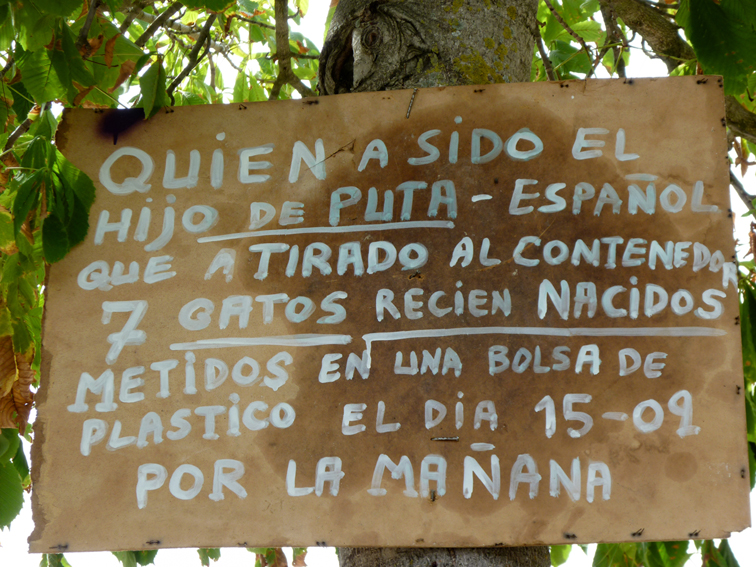 QUIEN A SIDO EL
HIJO DE PUTA - ESPAÑOL
QUE A TIRADO AL CONTENEDOR
7 GATOS RECIEN NACIDOS
METIDOS EN UNA BOLSA DE
PLASTICO EL DIA 15-09
POR LA MAÑANA